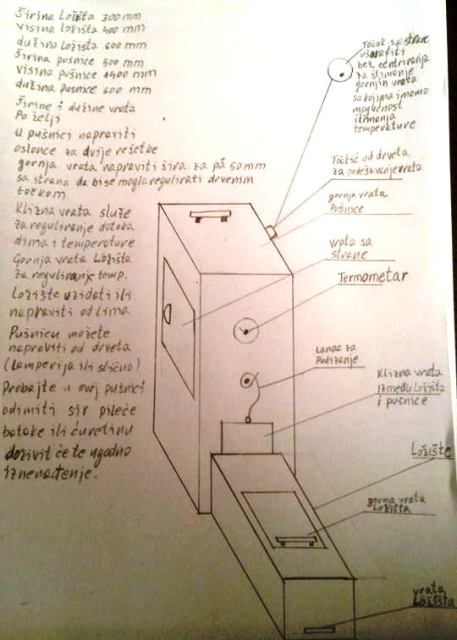 Širina Ložišta 300mm
visina ložišta 400 mm
dužina ložišta 600mm
širina pušnice 500 mm
visina pušnice 1400 mm
dužina pušnice 600 mm
Širine i dužine vrata
Po želji
u pušnici napraviti
oslonce za dvije rešetke
gornja vrata napraviti šira za po 50mm
sa strana da bi se mogla regulirati drvenim
točkom
Klizna vrata služe
za reguliranje dotoka
dima i temperature
Gornja vrata Ložišta
za reguliranje temp.
Ložište uzidati ili
napraviti od lima
Pušnicu možete
napraviti od drveta
(lamperija ili slično)
Probajte u ovoj pušnici
odimiti sir pileće
batake ili ćuretinu
doživit ćete ugodno
iznenađenje.
Točak sa strane
ušarafiti
bez centriranja
za štimanje
gornjih vrata
sa kojima imamo
mogućnost
štimanja
temperature
Točkić od drveta
za podešavanje vrata
gornja vrata
Pušnice
vrata sa
strane
Termometar
Lanac za
Podizanje
Klizna vrata
između ložišta
i pušnice
Ložište
gornja vrata
Ložišta
vrata
Ložišta